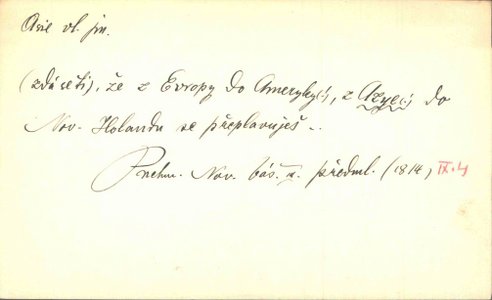 Asie vl. jm.
(zdá se ti), že z Evropy do Ameryky(,), z Azye(,) do
Nov. Holandu se přeplavuješ ..
Puchm. Nov. bás. V. předml. (1814) IX.4